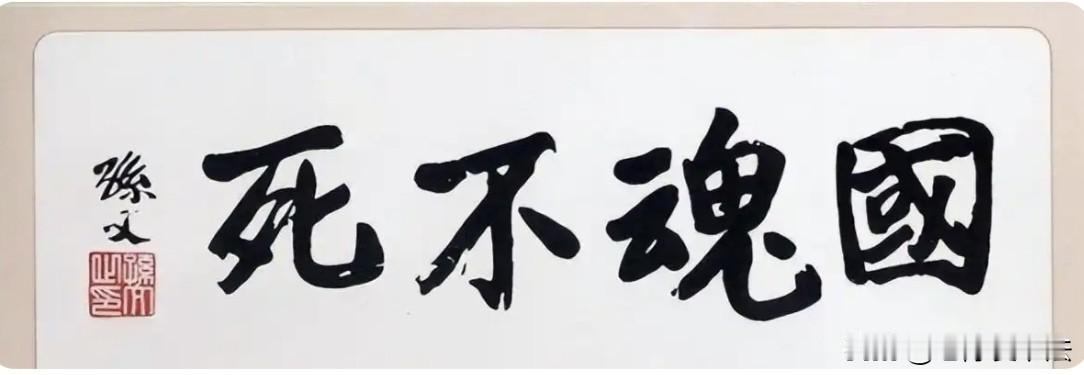 國魂不死
孫文
孫文之印